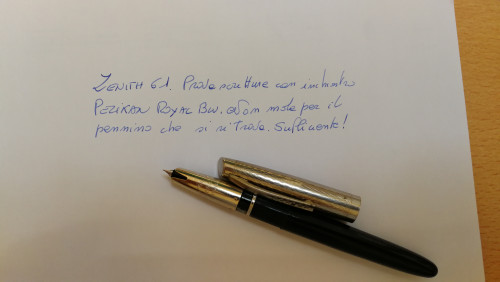 ZENITH 61. Prova scritture con inchiostro
PELIKAN ROYAL BLU. Non male per il
pennino che si ritrova. Sufficiente!